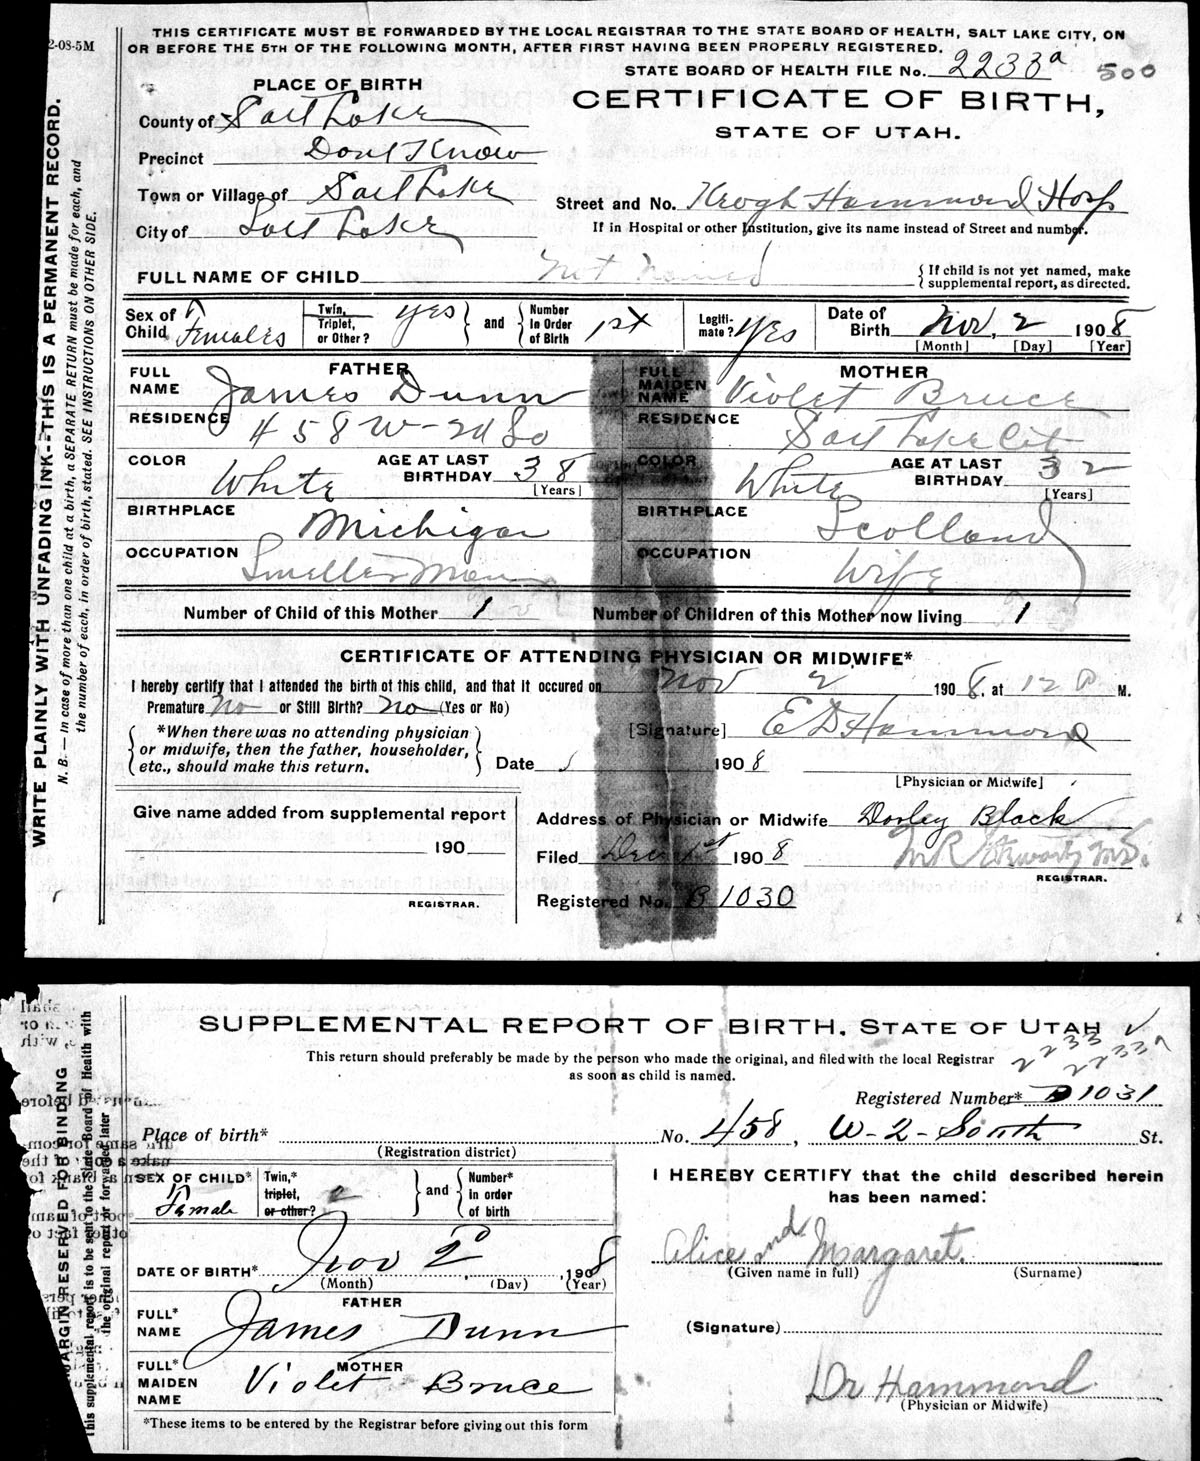 2-08-5M
THIS CERTIFICATE MUST BE FORWARDED BY THE LOCAL REGISTRAR TO THE STATE BOARD OF HEALTH, SALT LAKE CITY, ON
OR BEFORE THE 5TH OF THE FOLLOWING MONTH, AFTER FIRST HAVING BEEN PROPERLY REGISTERED.
STATE BOARD OF HEALTH FILE No. 2233a 500
PLACE OF BIRTH
CERTIFICATE OF BIRTH,
STATE OF UTAH.
County of Salt Lake
Precinct Dont Know
Town or Village of Salt Lake
City of Salt Lake
Street and No. Keogh Hammond Hosp
If in Hospital or other Institution, give its name instead of Street and number.
FULL NAME OF CHILD Not Named
If child is not yet named, make
supplemental report, as directed.
Sex of Child Females
Twin, Triplet, or Other? yes and Number in Order of Birth 1st
Legiti-mate? Yes
Date of Birth Nov, 2 1908
[Month] [Day] [Year]
FATHER
FULL NAME James Dunn
RESIDENCE 458 W-2d So
COLOR White AGE AT LAST BIRTHDAY 38
[Years]
BIRTHPLACE Michigan
OCCUPATION Smelter Man
MOTHER
FULL MAIDEN NAME Violet Bruce
RESIDENCE Salt Lake Cit
COLOR White AGE AT LAST BIRTHDAY 32
[Years]
BIRTHPLACE Scotland
OCCUPATION Wife
Number of Child of this Mother 1 Number of Children of this Mother now living 1
CERTIFICATE OF ATTENDING PHYSICIAN OR MIDWIFE*
I hereby certify that I attended the birth of this child, and that it occured on Nov 2 1908, at 12 M.
Premature No or Still Birth? No (Yes or No)
*When there was no attending physician
or midwife, then the father, householder,
etc., should make this return.
[Signature] E D Hammond
Date 1908
[Physician or Midwife]
Give name added from supplemental report
190
REGISTRAR.
Address of Physician or Midwife Dooley Block
Filed Dec 1st 1908
REGISTRAR.
Registered No. B 1030
WRITE PLAINLY WITH UNFADING INK--THIS IS A PERMANENT RECORD.
N. B. — In case of more than one child at a birth, a SEPARATE RETURN must be made for each, and
the number of each, in order of birth, stated. SEE INSTRUCTIONS ON OTHER SIDE.
SUPPLEMENTAL REPORT OF BIRTH. STATE OF UTAH
This return should preferably be made by the person who made the original, and filed with the local Registrar
as soon as child is named.
2233
2233a
Registered Number* B 1031
Place of birth* No. 458, W-2-South St.
(Registration district)
SEX OF CHILD* Female
Twin,* triplet, or other? 2 and Number* in order of birth
I HEREBY CERTIFY that the child described herein
has been named:
Alice and Margaret.
(Given name in full) (Surname)
DATE OF BIRTH* Nov 2d, 1908
(Month) (Day) (Year)
FATHER
FULL* NAME James Dunn
(Signature)
MOTHER
FULL* MAIDEN NAME Violet Bruce
Dr Hammond
(Physician or Midwife)
*These items to be entered by the Registrar before giving out this form
MARGIN RESERVED FOR BINDING
This supplemental report is to be sent to the State Board of Health with
the original report or forwarded later